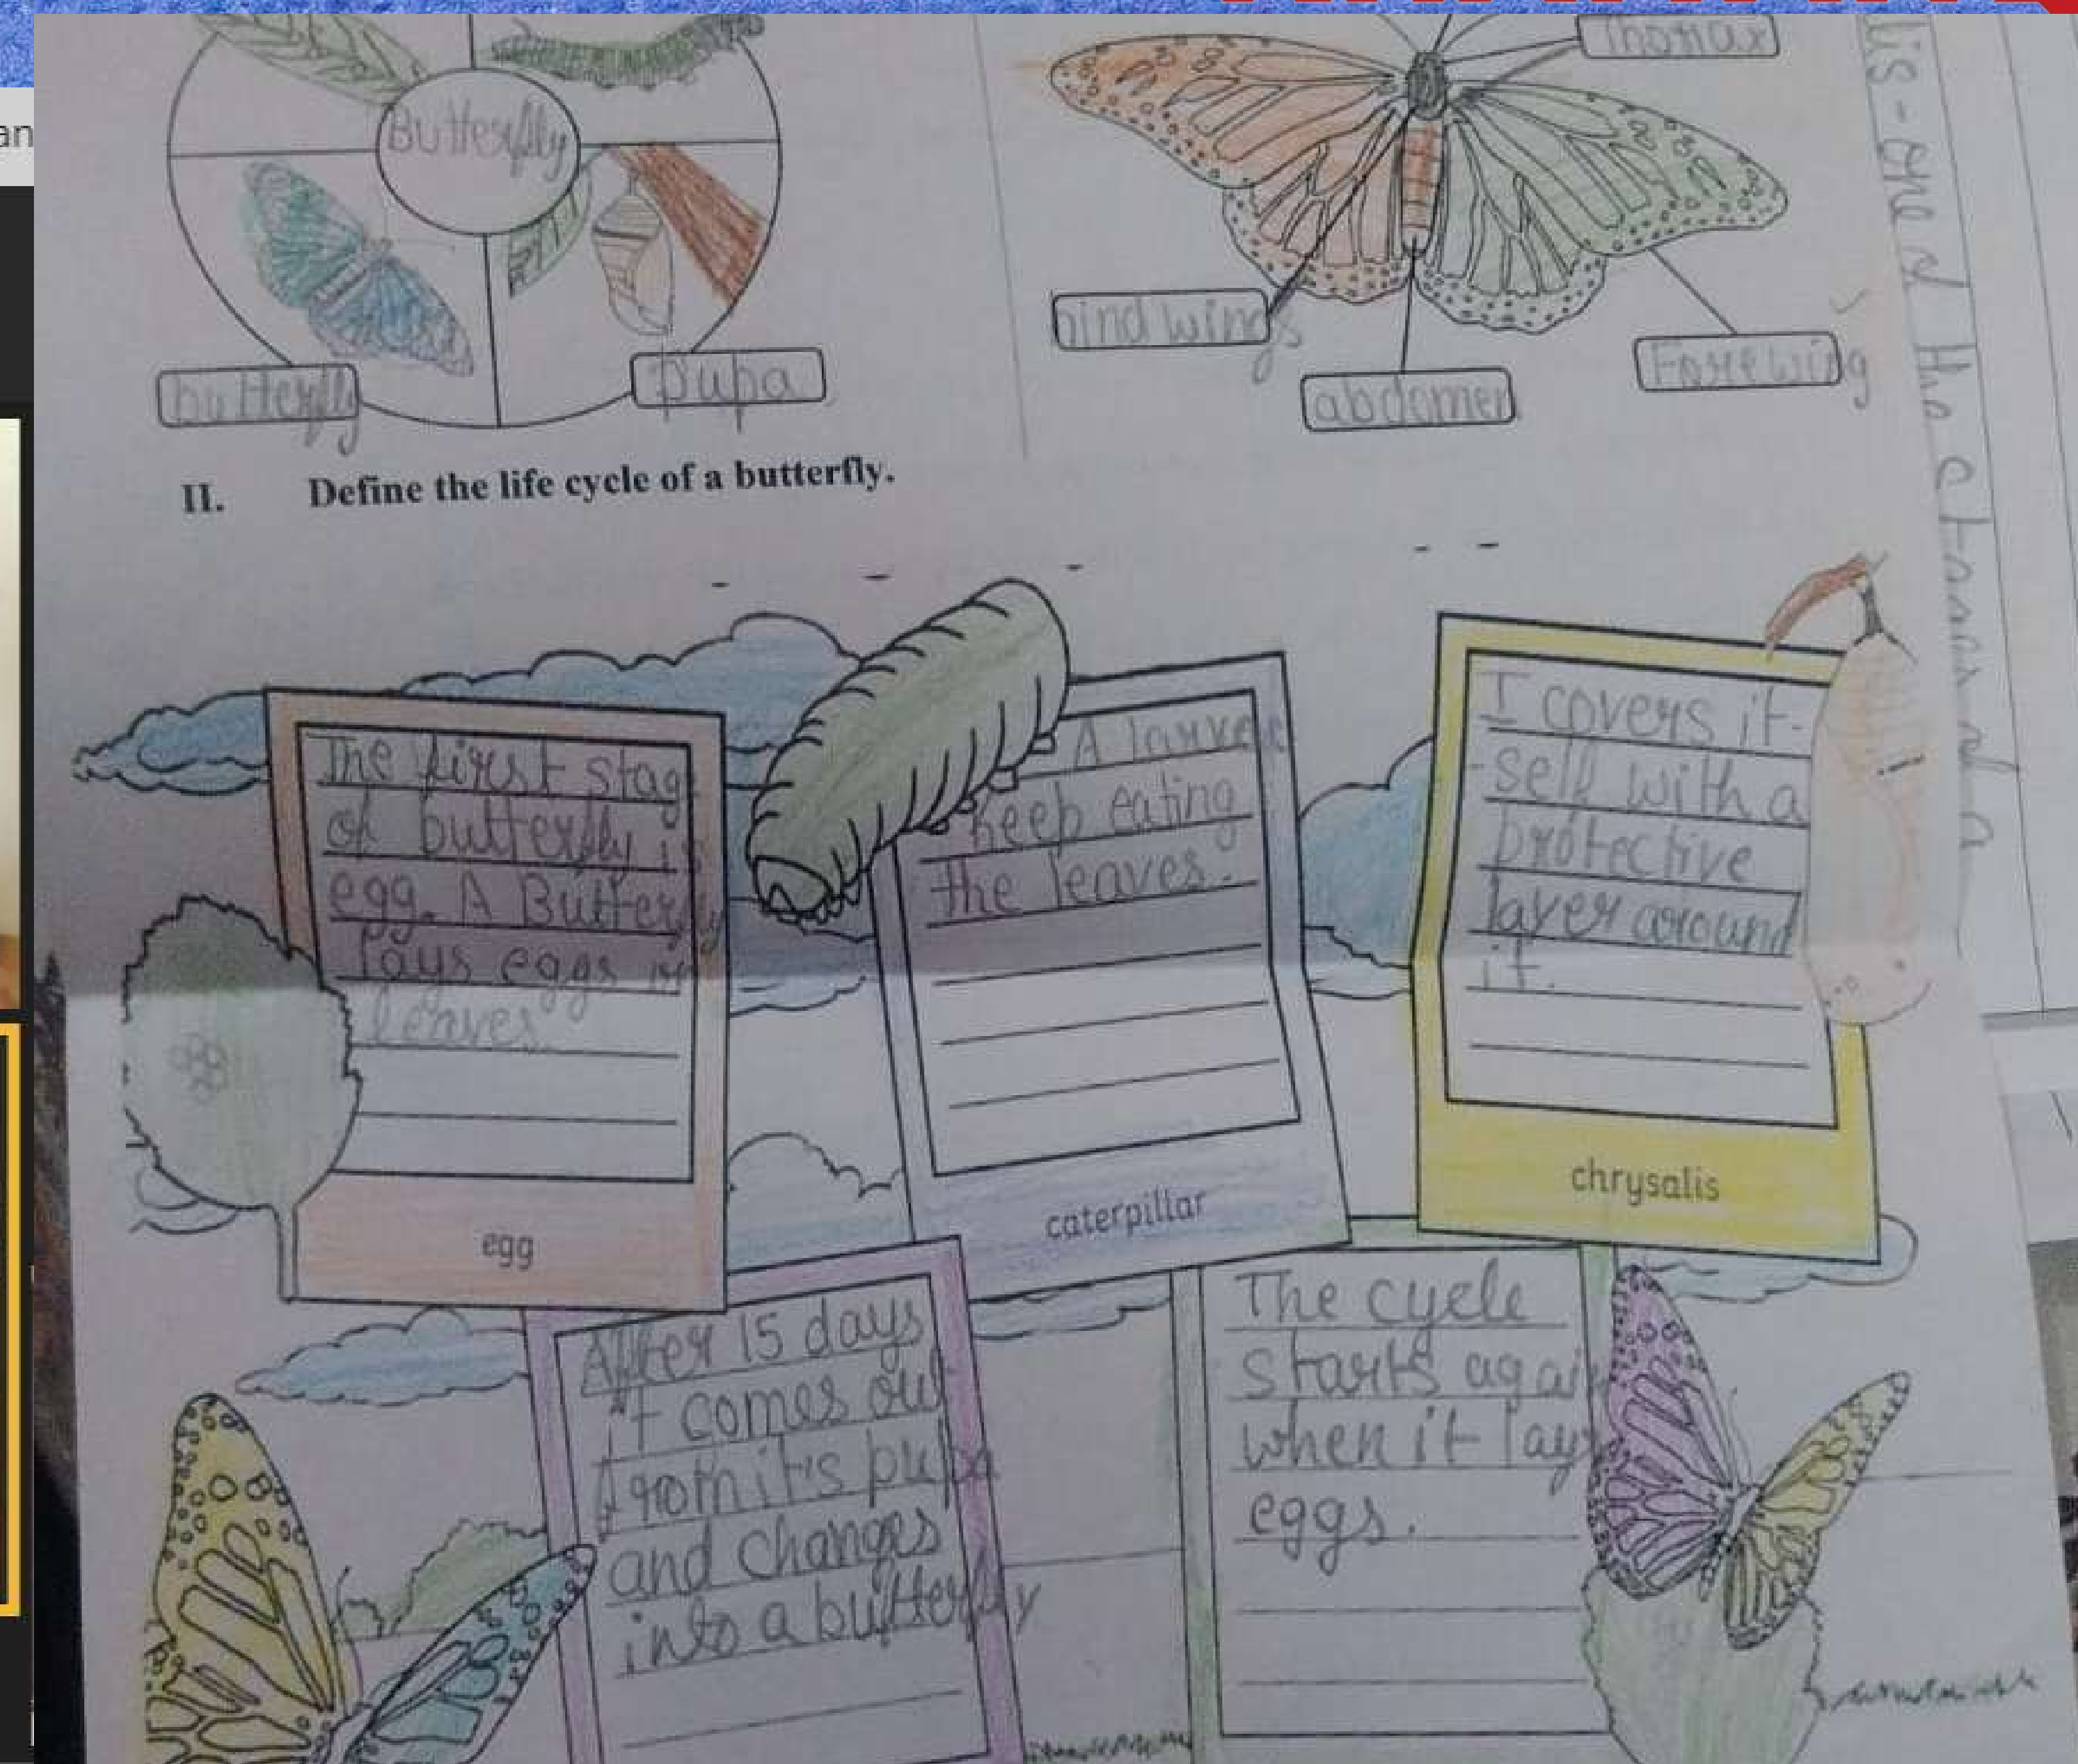 an
Butterfly
butterfly
pupa
Thorax
hind wings
abdomen
Forewing
II. Define the life cycle of a butterfly.
The first stag
of butterfly is
egg. A Butterfly
lays eggs in
leaves.
egg
A larvae
keep eating
the leaves.
caterpillar
I covers it-
-self with a
protective
layer around
it.
chrysalis
After 15 days
it comes out
from it's pupa
and changes
into a butterfly
The cycle
starts again
when it lays
eggs.